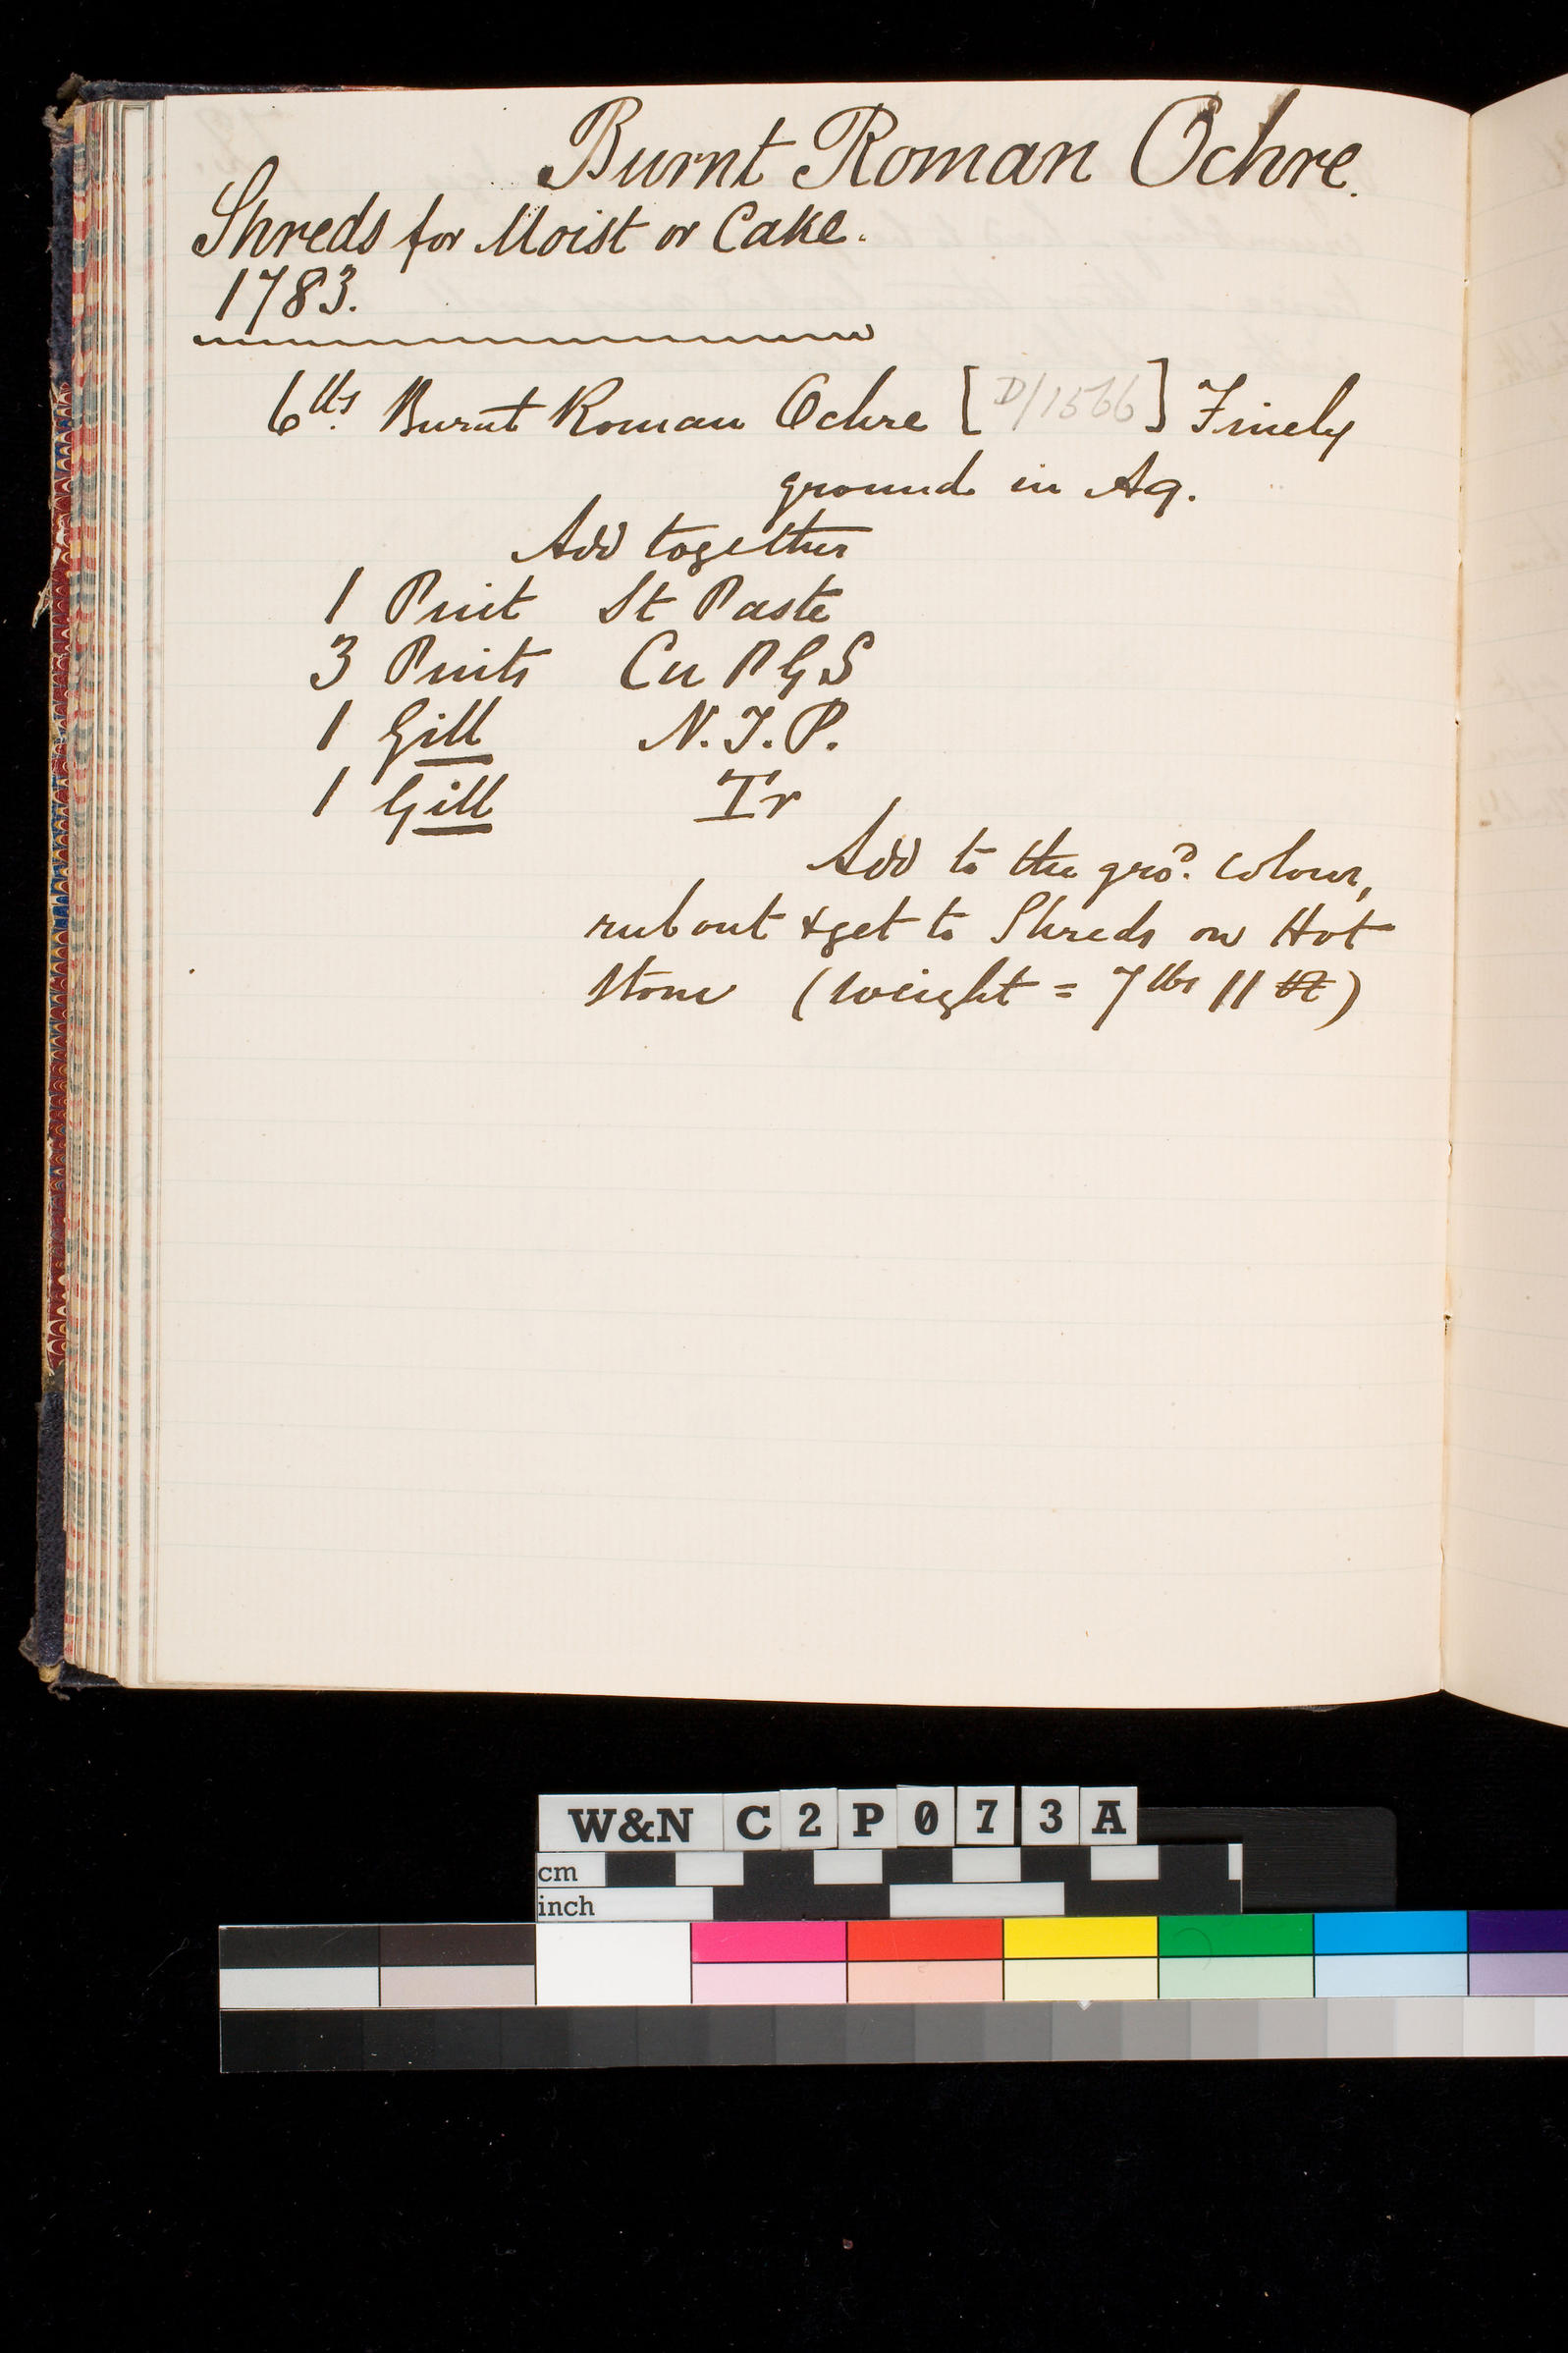 Burnt Roman Ochre.
Shreds for Moist or Cake.
1783.
6 lbs. Burnt Roman Ochre [D/1566] Finely
ground in Aq.
Add together
1 Pint St Paste
3 Pints Cu P G S
1 Gill N.T.P.
1 Gill Tr
Add to the gro'd. colour,
rub out & get to Shreds on Hot
Stone (weight = 7 lbs 11
W&N C2P073A
cm
inch